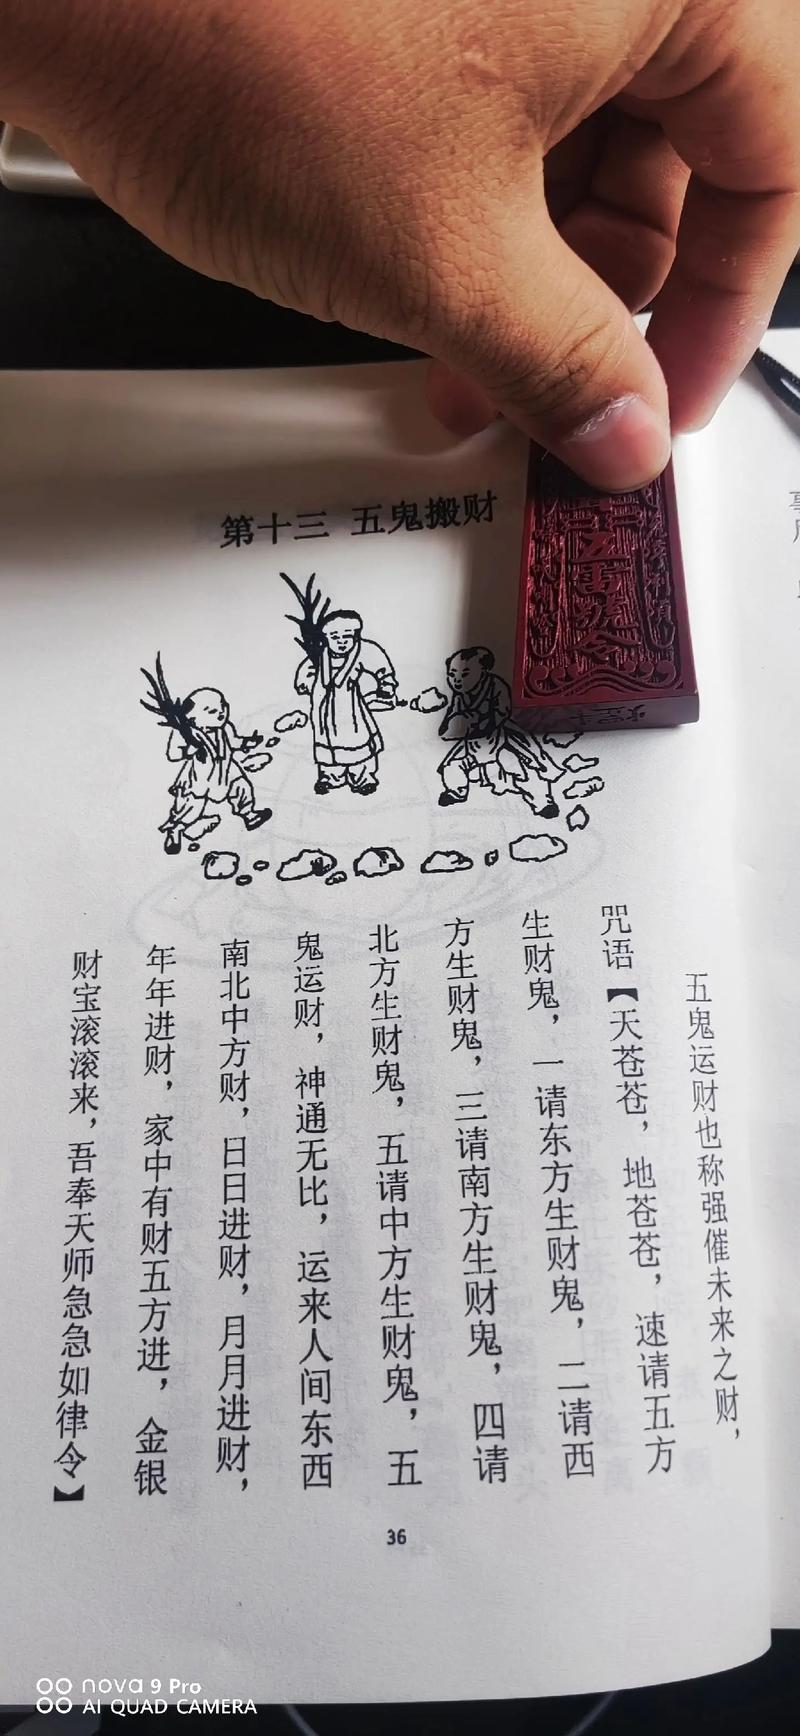 第十三 五鬼搬财
五雷號令
五鬼运财也称强催未来之财，
咒语【天苍苍，地苍苍，速请五方
生财鬼，一请东方生财鬼，二请西
方生财鬼，三请南方生财鬼，四请
北方生财鬼，五请中方生财鬼，五
鬼运财，神通无比，运来人间东西
南北中方财，日日进财，月月进财，
年年进财，家中有财五方进，金银
财宝滚滚来，吾奉天师急急如律令】
36
nova 9 Pro
AI QUAD CAMERA